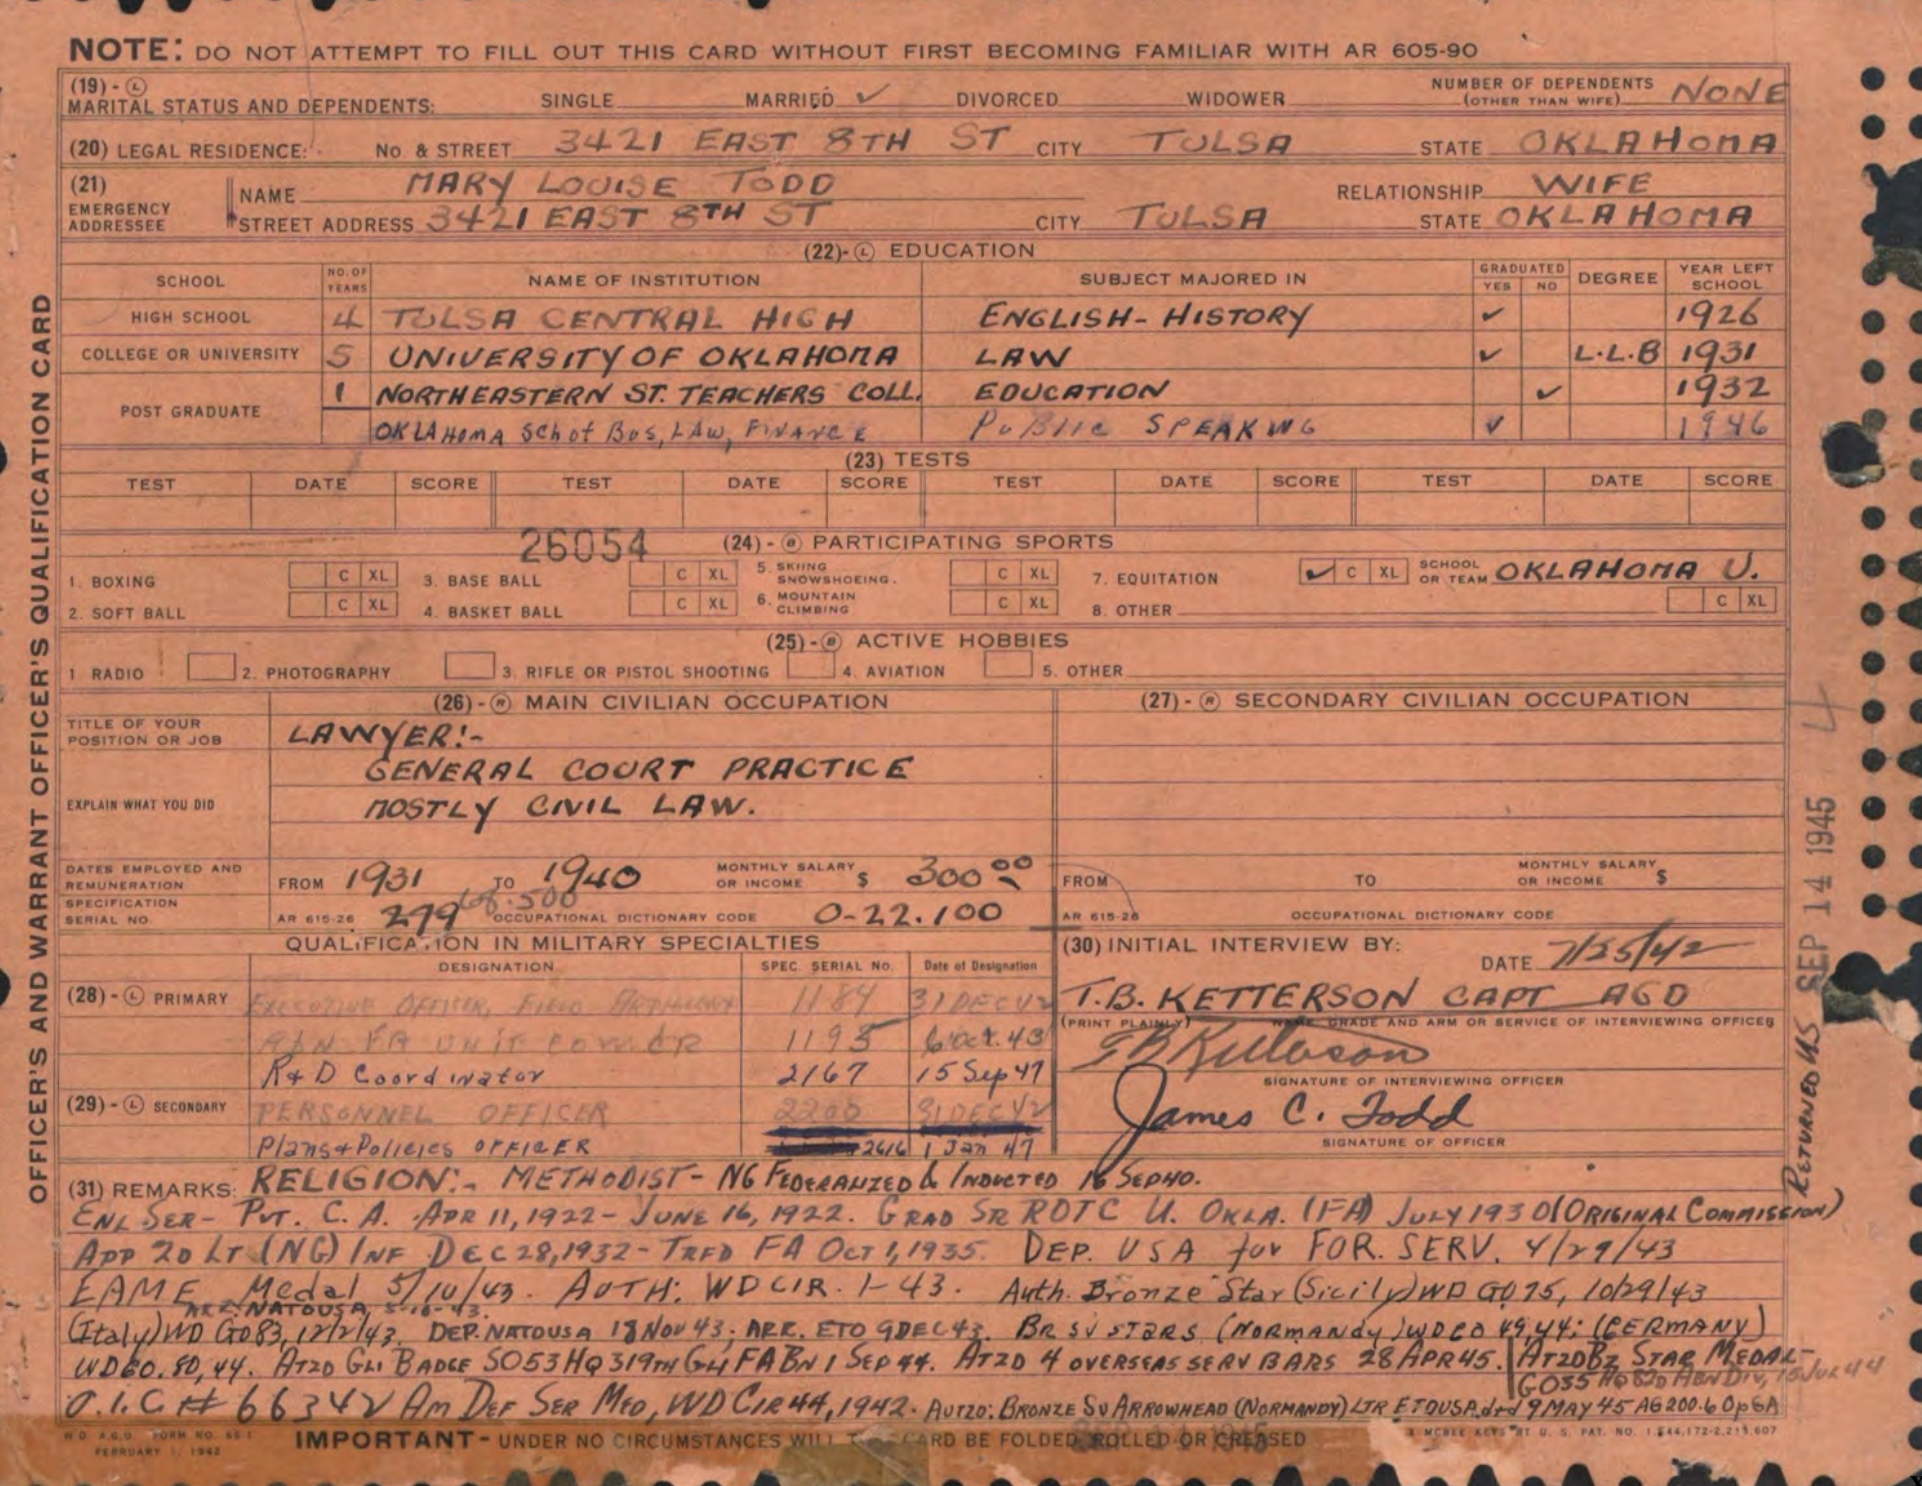 NOTE: DO NOT ATTEMPT TO FILL OUT THIS CARD WITHOUT FIRST BECOMING FAMILIAR WITH AR 605-90
(19)-Ⓛ MARITAL STATUS AND DEPENDENTS: SINGLE MARRIED ✓ DIVORCED WIDOWER NUMBER OF DEPENDENTS (OTHER THAN WIFE) NONE
(20) LEGAL RESIDENCE: No. & STREET 3421 EAST 8TH ST CITY TULSA STATE OKLAHOMA
(21) EMERGENCY ADDRESSEE NAME MARY LOUISE TODD RELATIONSHIP WIFE
STREET ADDRESS 3421 EAST 8TH ST CITY TULSA STATE OKLAHOMA
(22)-Ⓛ EDUCATION
SCHOOL NO. OF YEARS NAME OF INSTITUTION SUBJECT MAJORED IN GRADUATED YES NO DEGREE YEAR LEFT SCHOOL
HIGH SCHOOL 4 TULSA CENTRAL HIGH ENGLISH-HISTORY ✓ 1926
COLLEGE OR UNIVERSITY 5 UNIVERSITY OF OKLAHOMA LAW ✓ L.L.B 1931
POST GRADUATE 1 NORTHEASTERN ST. TEACHERS COLL. EDUCATION ✓ 1932
OKLAHOMA Sch of Bus, LAW, FINANCE PUBlic SPEAKING ✓ 1946
(23) TESTS
TEST DATE SCORE TEST DATE SCORE TEST DATE SCORE TEST DATE SCORE
26054
(24)-Ⓑ PARTICIPATING SPORTS
1. BOXING C XL 3. BASE BALL C XL 5. SKIING SNOWSHOEING. C XL 7. EQUITATION ✓ C XL SCHOOL OR TEAM OKLAHOMA U.
2. SOFT BALL C XL 4. BASKET BALL C XL 6. MOUNTAIN CLIMBING C XL 8. OTHER C XL
(25)-Ⓑ ACTIVE HOBBIES
1 RADIO 2. PHOTOGRAPHY 3. RIFLE OR PISTOL SHOOTING 4. AVIATION 5. OTHER
(26)-Ⓡ MAIN CIVILIAN OCCUPATION (27)-Ⓡ SECONDARY CIVILIAN OCCUPATION
TITLE OF YOUR POSITION OR JOB LAWYER:-
GENERAL COURT PRACTICE
EXPLAIN WHAT YOU DID MOSTLY CIVIL LAW.
DATES EMPLOYED AND REMUNERATION FROM 1931 TO 1940 MONTHLY SALARY OR INCOME $ 300.00 FROM TO MONTHLY SALARY OR INCOME $
68.500
SPECIFICATION SERIAL NO. AR 615-26 279 OCCUPATIONAL DICTIONARY CODE 0-22.100 AR 615-26 OCCUPATIONAL DICTIONARY CODE
QUALIFICATION IN MILITARY SPECIALTIES
DESIGNATION SPEC. SERIAL NO. Date of Designation
(28)-Ⓛ PRIMARY EXECUTIVE OFFICER, FIELD ARTILLERY 1184 31 DEC 42
RLN FA UNIT COMDR 1193 6 Oct. 43
R+D Coordinator 2167 15 Sep 47
(29)-Ⓛ SECONDARY PERSONNEL OFFICER 2200 31 DEC 42
Plans+Policies OFFICER 2616 1 Jan 47
(30) INITIAL INTERVIEW BY: DATE 7/25/42
T.B. KETTERSON CAPT AGD
(PRINT PLAINLY) NAME, GRADE AND ARM OR SERVICE OF INTERVIEWING OFFICER
TB Ketterson
SIGNATURE OF INTERVIEWING OFFICER
James C. Todd
SIGNATURE OF OFFICER
(31) REMARKS: RELIGION:- METHODIST- NG FEDERALIZED & INDUCTED 16 SEP40.
ENL SER- PVT. C. A. APR 11, 1922- JUNE 16, 1922. GRAD SR ROTC U. OKLA. (FA) JULY 1930 (ORIGINAL COMMISSION)
APP 2D LT (NG) INF DEC 28, 1932- TRFD FA OCT 1, 1935. DEP. USA for FOR. SERV. 4/29/43
EAME Medal 5/10/43. AUTH: WD CIR. 1-43. Auth. Bronze Star (Sicily) WD GO 75, 10/29/43
ARR. NATOUSA, 5-10-43.
(Italy) WD GO83, 12/2/43. DEP. NATOUSA 18 NOV 43; ARR. ETO 9DEC43. BR SV STARS (NORMANDY) WDGO 49,44; (GERMANY)
WDGO. 80, 44. ATZD GLI BADGE SO53 HQ 319TH GLI FA BN 1 SEP 44. ATZD 4 OVERSEAS SERV BARS 28 APR45. ATZD BZ STAR MEDAL-
GO35 HQ 82D ABN DIV, 15 JUL 44
O.I.C # 66342 AM DEF SER MED, WD CIR 44, 1942. AUTZD: BRONZE SV ARROWHEAD (NORMANDY) LTR ETOUSA dtd 9 MAY 45 AG 200.6 OpGA
W.D. A.G.O. FORM NO. 66-1
FEBRUARY 1, 1942
IMPORTANT- UNDER NO CIRCUMSTANCES WILL CARD BE FOLDED ROLLED OR CREASED
X MCBEE KEYSORT U. S. PAT. NO. 1,544,172-2,213,607
OFFICER'S AND WARRANT OFFICER'S QUALIFICATION CARD
RETURNED US SEP 14 1945 4